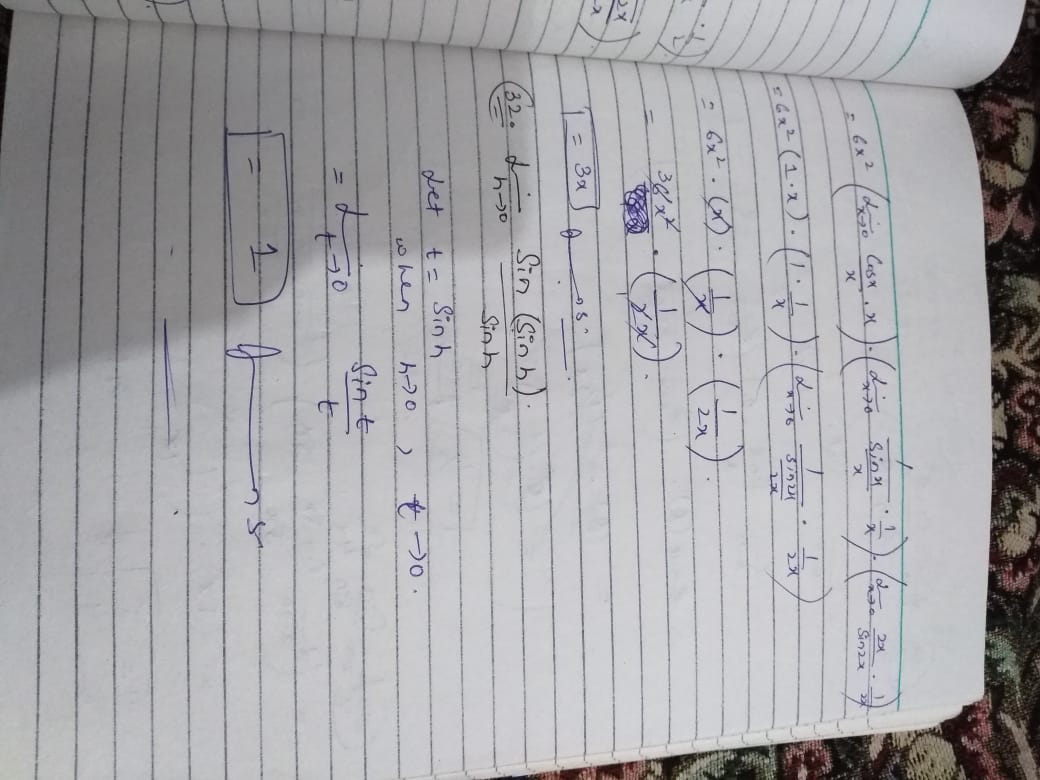 = 6x² (lim x→0 cosx/x · x) · (lim x→0 1/(sinx/x) · 1/x) · (lim x→0 2x/sin2x · 1/2x)
= 6x² (1·x) · (1 · 1/x) · (lim x→0 1/(sin2x/2x) · 1/2x)
= 6x² · (x) · (1/x) · (1/2x) .
=
= 3x Ans
32. lim h→0 Sin (Sin h) / Sin h .
Let t = Sin h
when h→0 , t→0 .
= lim t→0 Sin t / t
= 1 Ans